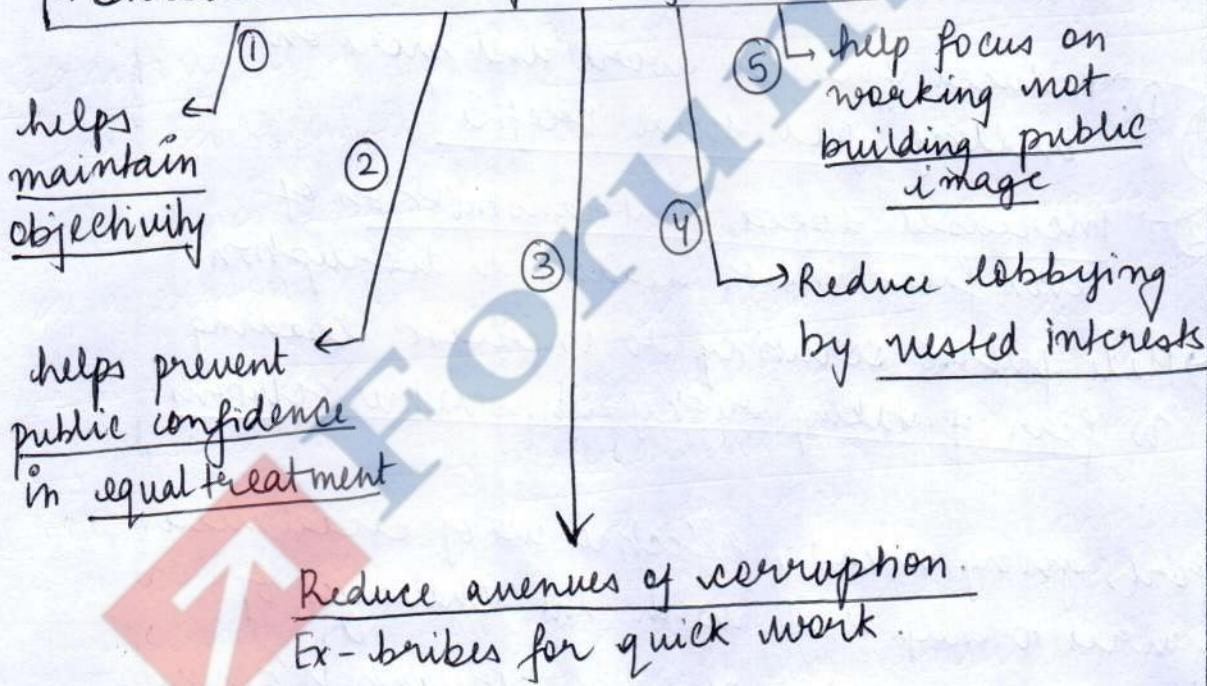 ①
helps
maintain
objectivity
②
helps prevent
public confidence
in equal treatment
③
Reduce avenues of corruption.
Ex- bribes for quick work.
④
Reduce lobbying
by vested interests.
⑤
help focus on
working not
building public
image
Forum